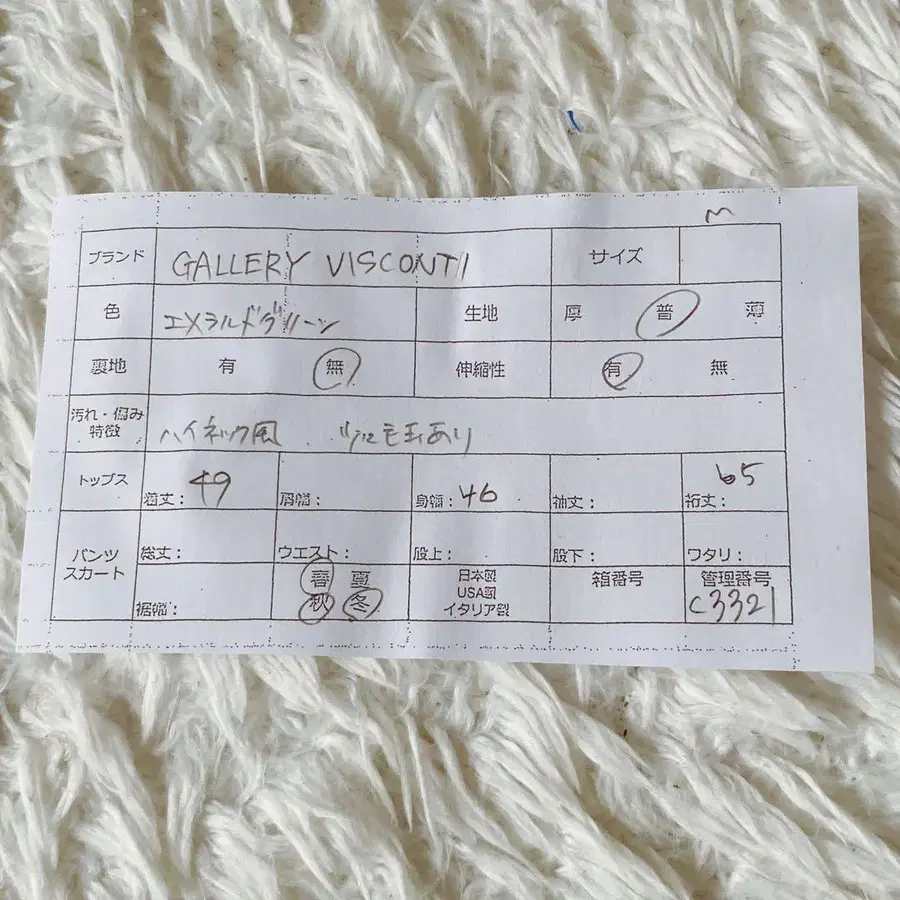 M
ブランド GALLERY VISCONTI サイズ
色 エメラルドグリーン 生地 厚 普 薄
裏地 有 無 伸縮性 有 無
汚れ・傷み
特徴 ハイネック風 毛玉あり
トップス 着丈: 49 肩幅: 身幅: 46 袖丈: 裄丈: 65
パンツ
スカート 総丈: ウエスト: 股上: 股下: ワタリ:
裾幅: 春 夏 秋 冬 日本製 USA製 イタリア製 箱番号 管理番号 C3321